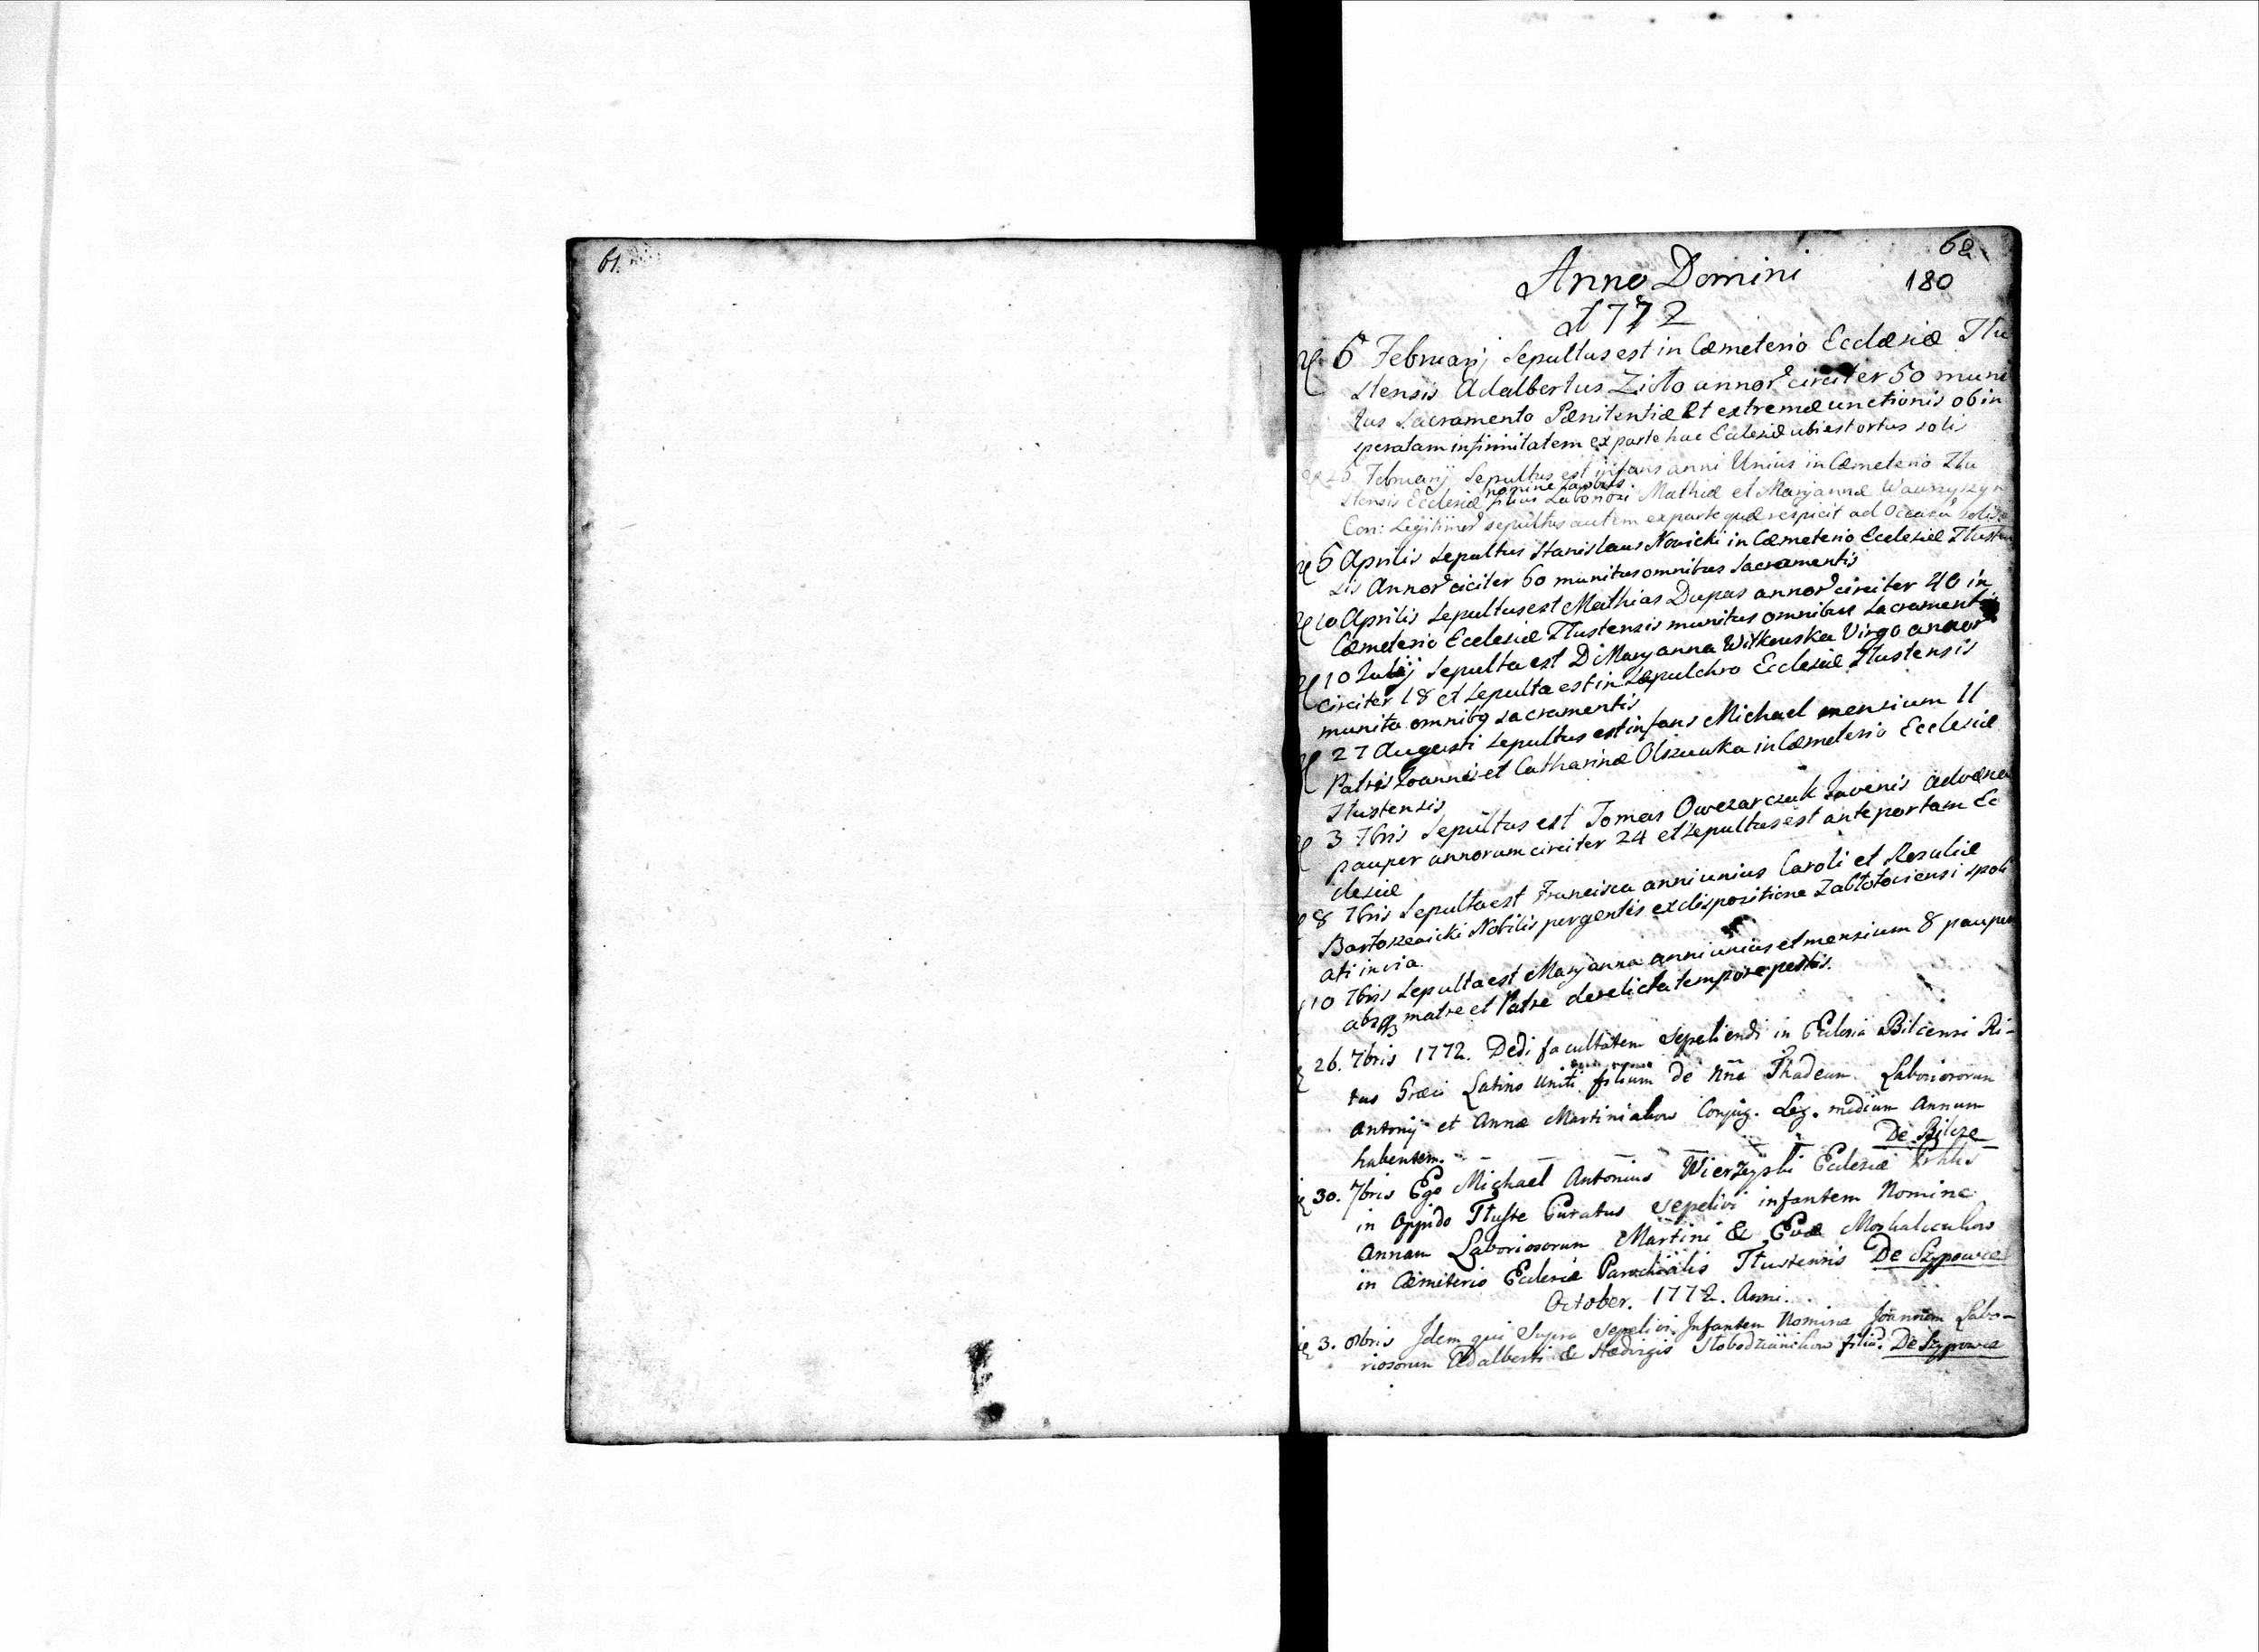 61.
62
180
Anno Domini
1772
6 Februarij Sepultus est in Cæmeterio Ecclesiæ Tłu
stensis Adalbertus Zioło annor circiter 50 muni
tus Sacramento Pænitentiæ Et extremæ unctionis ob in
speratam infirmitatem ex parte hac Eclesiæ ubi est ortus solis
Februarij Sepultus est infans anni Unius in Cæmeterio Tłu
nomine
stensis Ecclesiæ filius Laboriosi Mathiæ et Maryannæ Wawrzyszyn
Con: Legitimor sepultus autem ex parte quæ respicit ad Occasū Solis
5 Aprilis Sepultus Stanislaus Nowicki in Cæmeterio Ecclesiæ Tłusten
sis Annor ciciter 60 munitus omnibus Sacramentis
10 Aprilis Sepultus est Mathias Dupas annor circiter 40 in
Cæmeterio Ecclesiæ Tłustensis munitus omnibus Sacramentis
10 Julij Sepulta est D Maryanna Witkowska Virgo annor
circiter 18 et Sepulta est in Sepulchro Ecclesiæ Tłustensis
munita omnibq sacramentis
27 Augusti Sepultus est infans Michael mensium 11
Patris Joannis et Catharinæ Olszuwka in Cæmeterio Ecclesiæ
Tłustensis
3 7bris Sepultus est Tomas Owczarczuk Juvenis advena
pauper annorum circiter 24 et Sepultus est ante portam Ec
clesiæ
8 7bris Sepulta est Francisca anni unius Caroli et Rozaliæ
Bartoszewicki Nobilis pergentis ex dispositione Zabłotowiensi spoli
ati in via
10 7bris Sepulta est Maryanna anni unius et mensium 8 pauper
absq matre et Patre derelicta tempore pestis.
26. 7bris 1772. Dedi facultatem sepeliendi in Eclesia Bilcensi Ri-
tus Græci Latino Uniti filium de nñe Thadeum. Laboriosorum
Antonij et Annæ Martiniakow Conjug. Leg. medium Annum
habentem. De Bilcze
30. 7bris Ego Michael Antonius Wierzyski Eclesiæ
in Oppido Tłuste Curatus sepelivi infantem Nomine
Annam Laboriosorum Martini & Evæ
in Cæmiterio Eclesiæ Parochialis Tłustensis De Szypowce
October. 1772. Anni.
3. 8bris Idem qui Supra sepelivi Infantem Nomine Joannem Labo-
riosorum Adalberti & Hedvigis Słobodzianikow filiū. De Szypowce